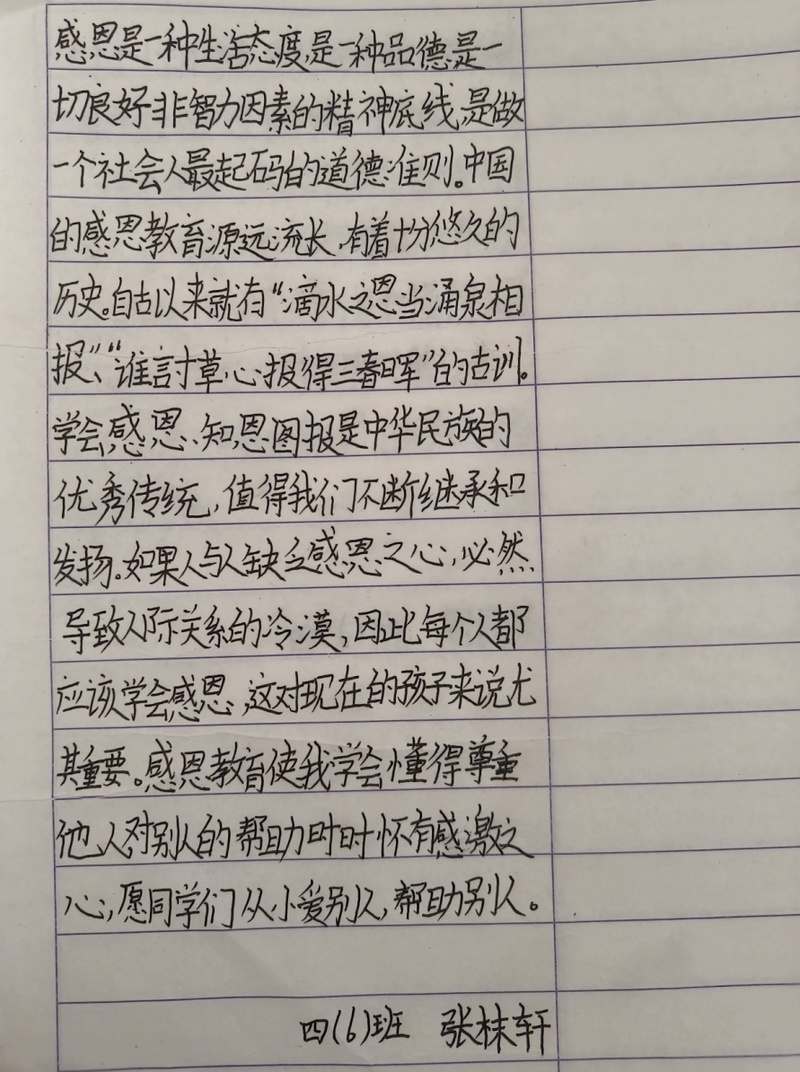 感恩是一种生活态度,是一种品德是一
切良好非智力因素的精神底线,是做
一个社会人最起码的道德准则。中国
的感恩教育源远流长,有着十分悠久的
历史。自古以来就有“滴水之恩当涌泉相
报”、“谁言寸草心报得三春晖”的古训。
学会感恩、知恩图报是中华民族的
优秀传统,值得我们不断继承和
发扬。如果人与人缺乏感恩之心,必然
导致人际关系的冷漠,因此每个人都
应该学会感恩,这对现在的孩子来说尤
其重要。感恩教育使我学会懂得尊重
他人对别人的帮助时时怀有感激之
心,愿同学们从小爱别人,帮助别人。
四(6)班 张抹轩